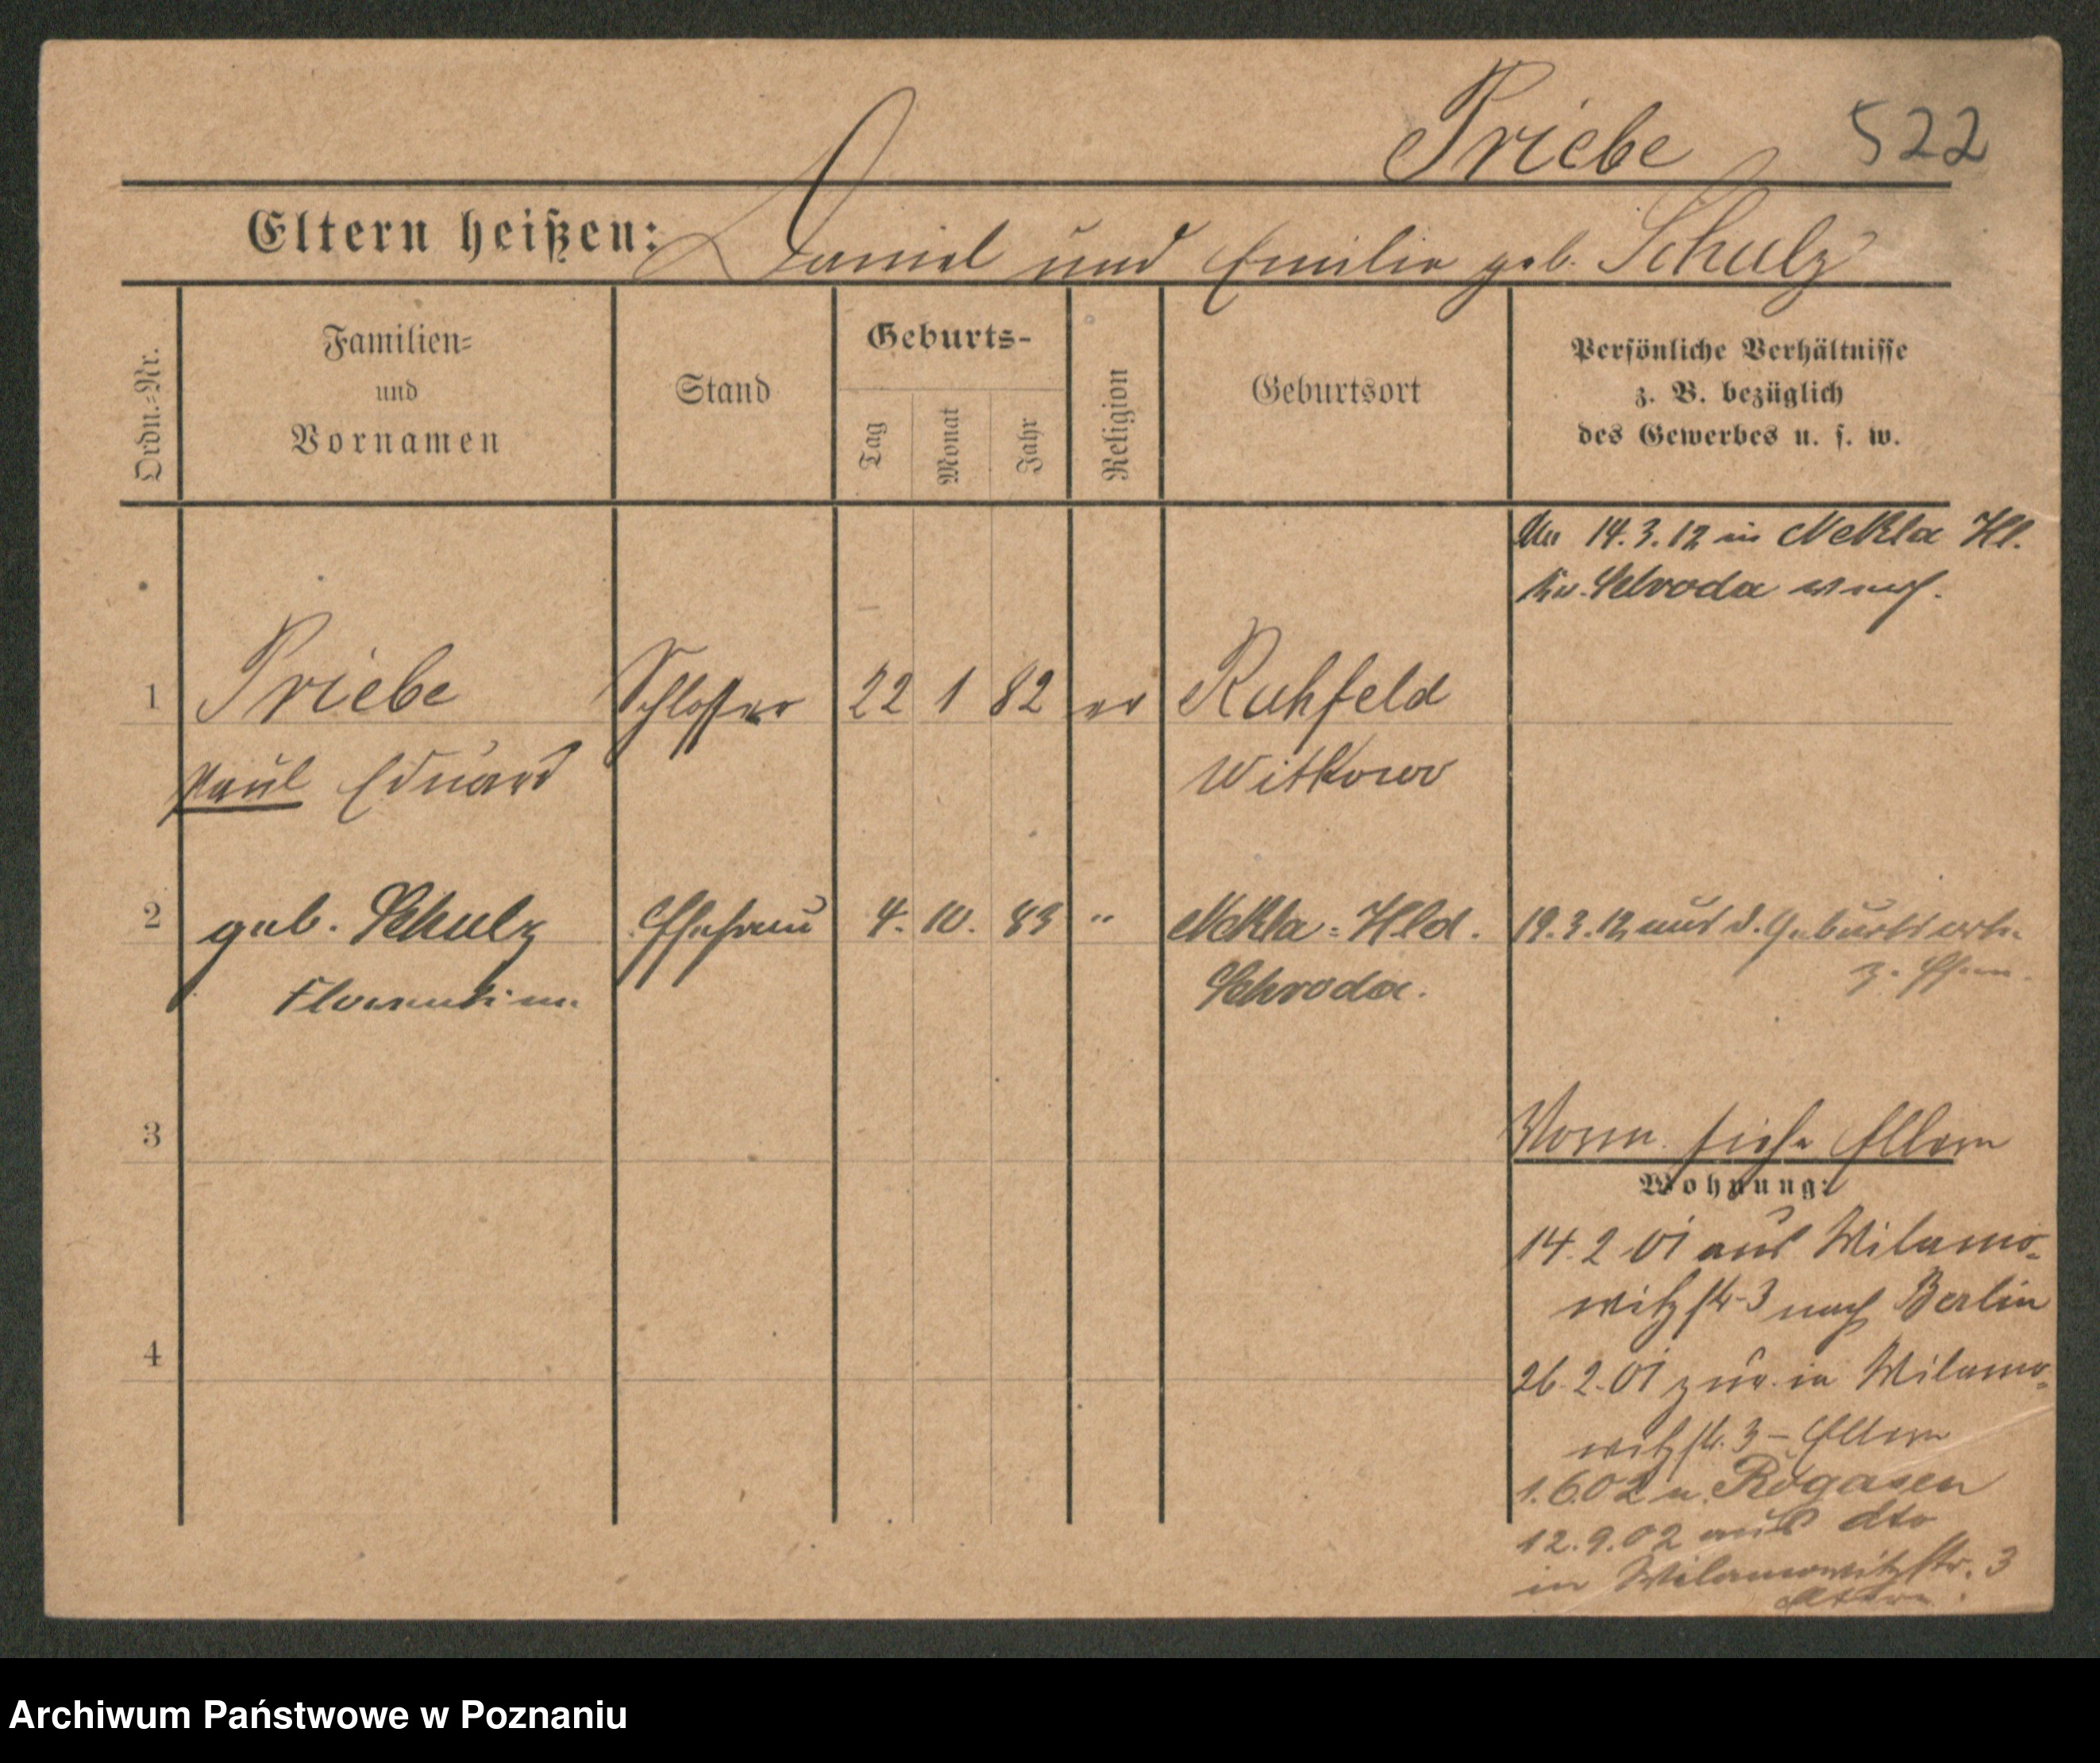 Priebe 522
Eltern heißen: Daniel und Emilie geb. Schulz
Ordn.-Nr.
Familien-
und
Vornamen
Stand
Geburts-
Tag
Monat
Jahr
Religion
Geburtsort
Persönliche Verhältnisse
z. B. bezüglich
des Gewerbes u. s. w.
14.3.12 in Nekla Hl.
Kr. Schroda
1 Priebe Schlosser 22 1 82 ev Ruhfeld
Paul Eduard Witkowo
2 geb. Schulz Ehefrau 4. 10. 83 " Nekla-Hld. 19.3.12 aus d. Geburtsorte
Florentine Schroda. z. Ehem.
3 Vorm. siehe Eltern
Wohnung:
14.2 01 aus Wilamo-
witzstr 3 nach Berlin
4
26.2.01 zur. in Wilamo-
witzstr. 3 – Eltern
1.6.02 n. Rogasen
12.9.02 aus dto
in Wilamowitzstr. 3
Eltern.
Archiwum Państwowe w Poznaniu